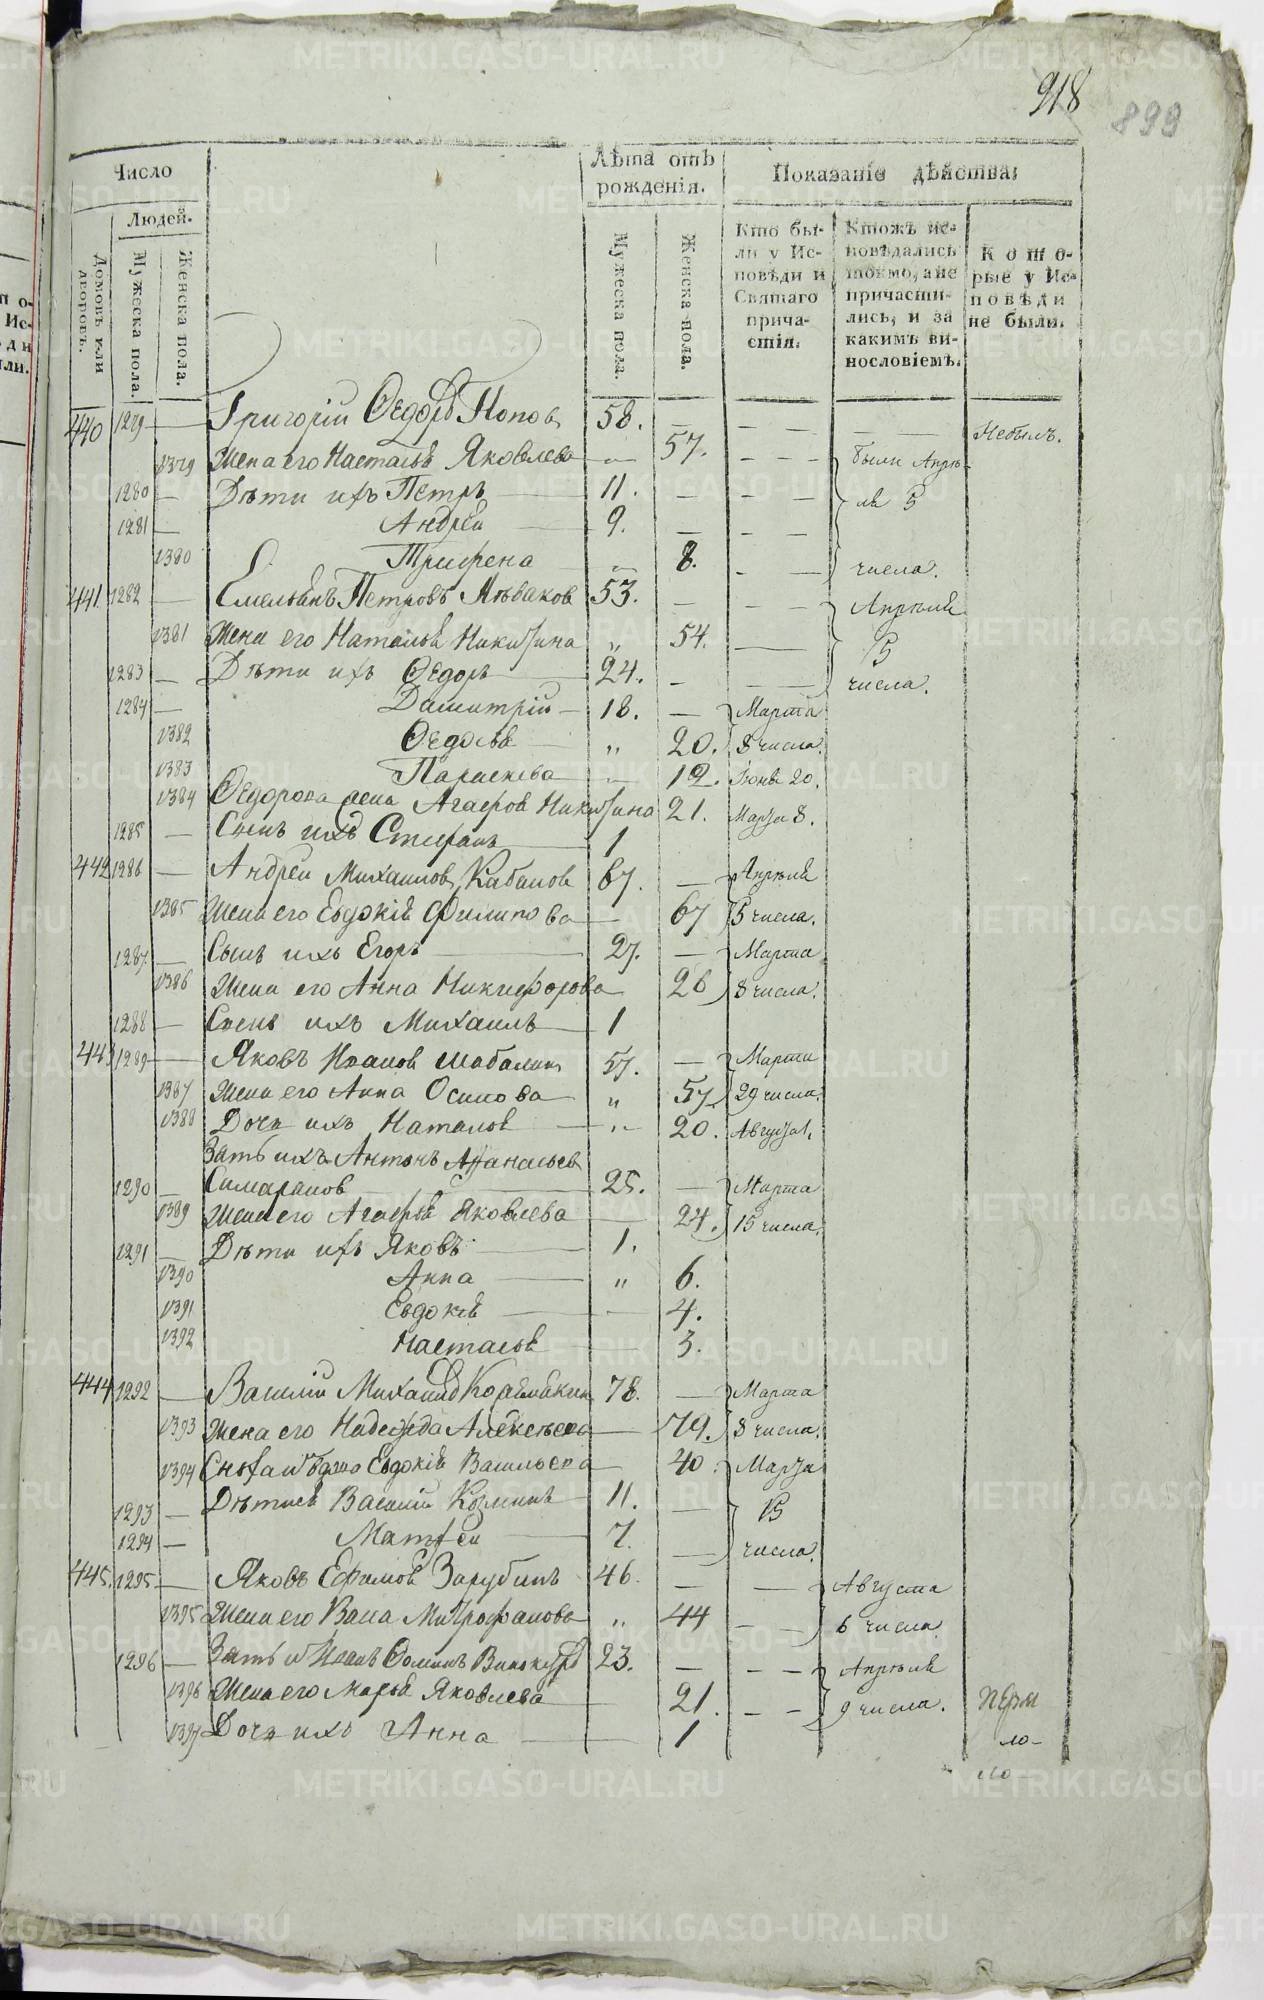 918
899
Число
Людей.
Домовъ или дворовъ.
Мужеска пола.
Женска пола.
Лѣта отъ рожденія.
Мужеска пола.
Женска пола.
Показаніе дѣйства:
Кто бы-
ли у Ис-
повѣди и
Святаго
прича-
стія.
Ктожъ ис-
повѣдались
токмо, а не
причасти-
лись, и за
какимъ ви-
нословіемъ.
Кото-
рые у Ис-
повѣди
не были.
440 1279 — Григорій Ѳедоръ Поповъ 58. — — — — — — Небылъ.
1379 Жена его Настасья Яковлева — 57. — — — были Апрѣ-
1280 — Дѣти ихъ Петръ 11. — — — ля 5
1281 — Андрей 9. — — —
1380 Трифена — 8. — — числа.
441 1282 — Емельянъ Петровъ 53. — — — Апрѣля
1381 Жена его Наталья Никитина „ 54. — 5
1283 — Дѣти ихъ Ѳедоръ 24. — — — числа.
1284 — Димитрій 18. — Марта
1382 Ѳедосья „ 20. 8 числа.
1383 Параскева — 12. Іюня 20.
1384 Ѳедорова жена Агафья Никитина 21. Марта 8.
1285 — Сынъ ихъ Стефанъ 1
442 1286 — Андрей Михаиловъ Кабановъ 67. — Апрѣля
1385 Жена его Евдокія Филипова — 67 5 числа.
1287 — Сынъ ихъ Егоръ 27. — Марта
1386 Жена его Анна Никифорова 26 8 числа.
1288 — Сынъ ихъ Михаилъ 1
443 1289 — Яковъ Ивановъ Шабалинъ 57. — Марта
1387 Жена его Анна Осипова „ 57. 29 числа.
1388 Дочь ихъ Наталья „ 20. Августа 1.
Зять ихъ Антонъ Афанасьевъ
1290 — 25. — Марта
1389 Жена его Агафья Яковлева — 24. 15 числа.
1291 — Дѣти ихъ Яковъ 1.
1390 Анна „ 6.
1391 Евдокія — 4.
1392 Настасья — 3.
444 1292 — Василій Михаиловъ 78. — Марта
1393 Жена его Надежда Алексѣева — 79. 8 числа.
1394 Сноха вдова Евдокія Васильева — 40. Марта
1293 — Дѣти ея Василій Козминъ 11. — 15
1294 — Матѳей 7. — числа.
445. 1295 — Яковъ Ефимовъ Зарубинъ 46. — — Августа
1395 Жена его Васса Митрофанова „ 44 — — 6 числа.
1296 — Зять Иванъ Ѳоминъ 23. — — — Апрѣля
1396 Жена его Марья Яковлева 21. — — 9 числа.
1397 Дочь ихъ Анна — 1
METRIKI.GASO-URAL.RU